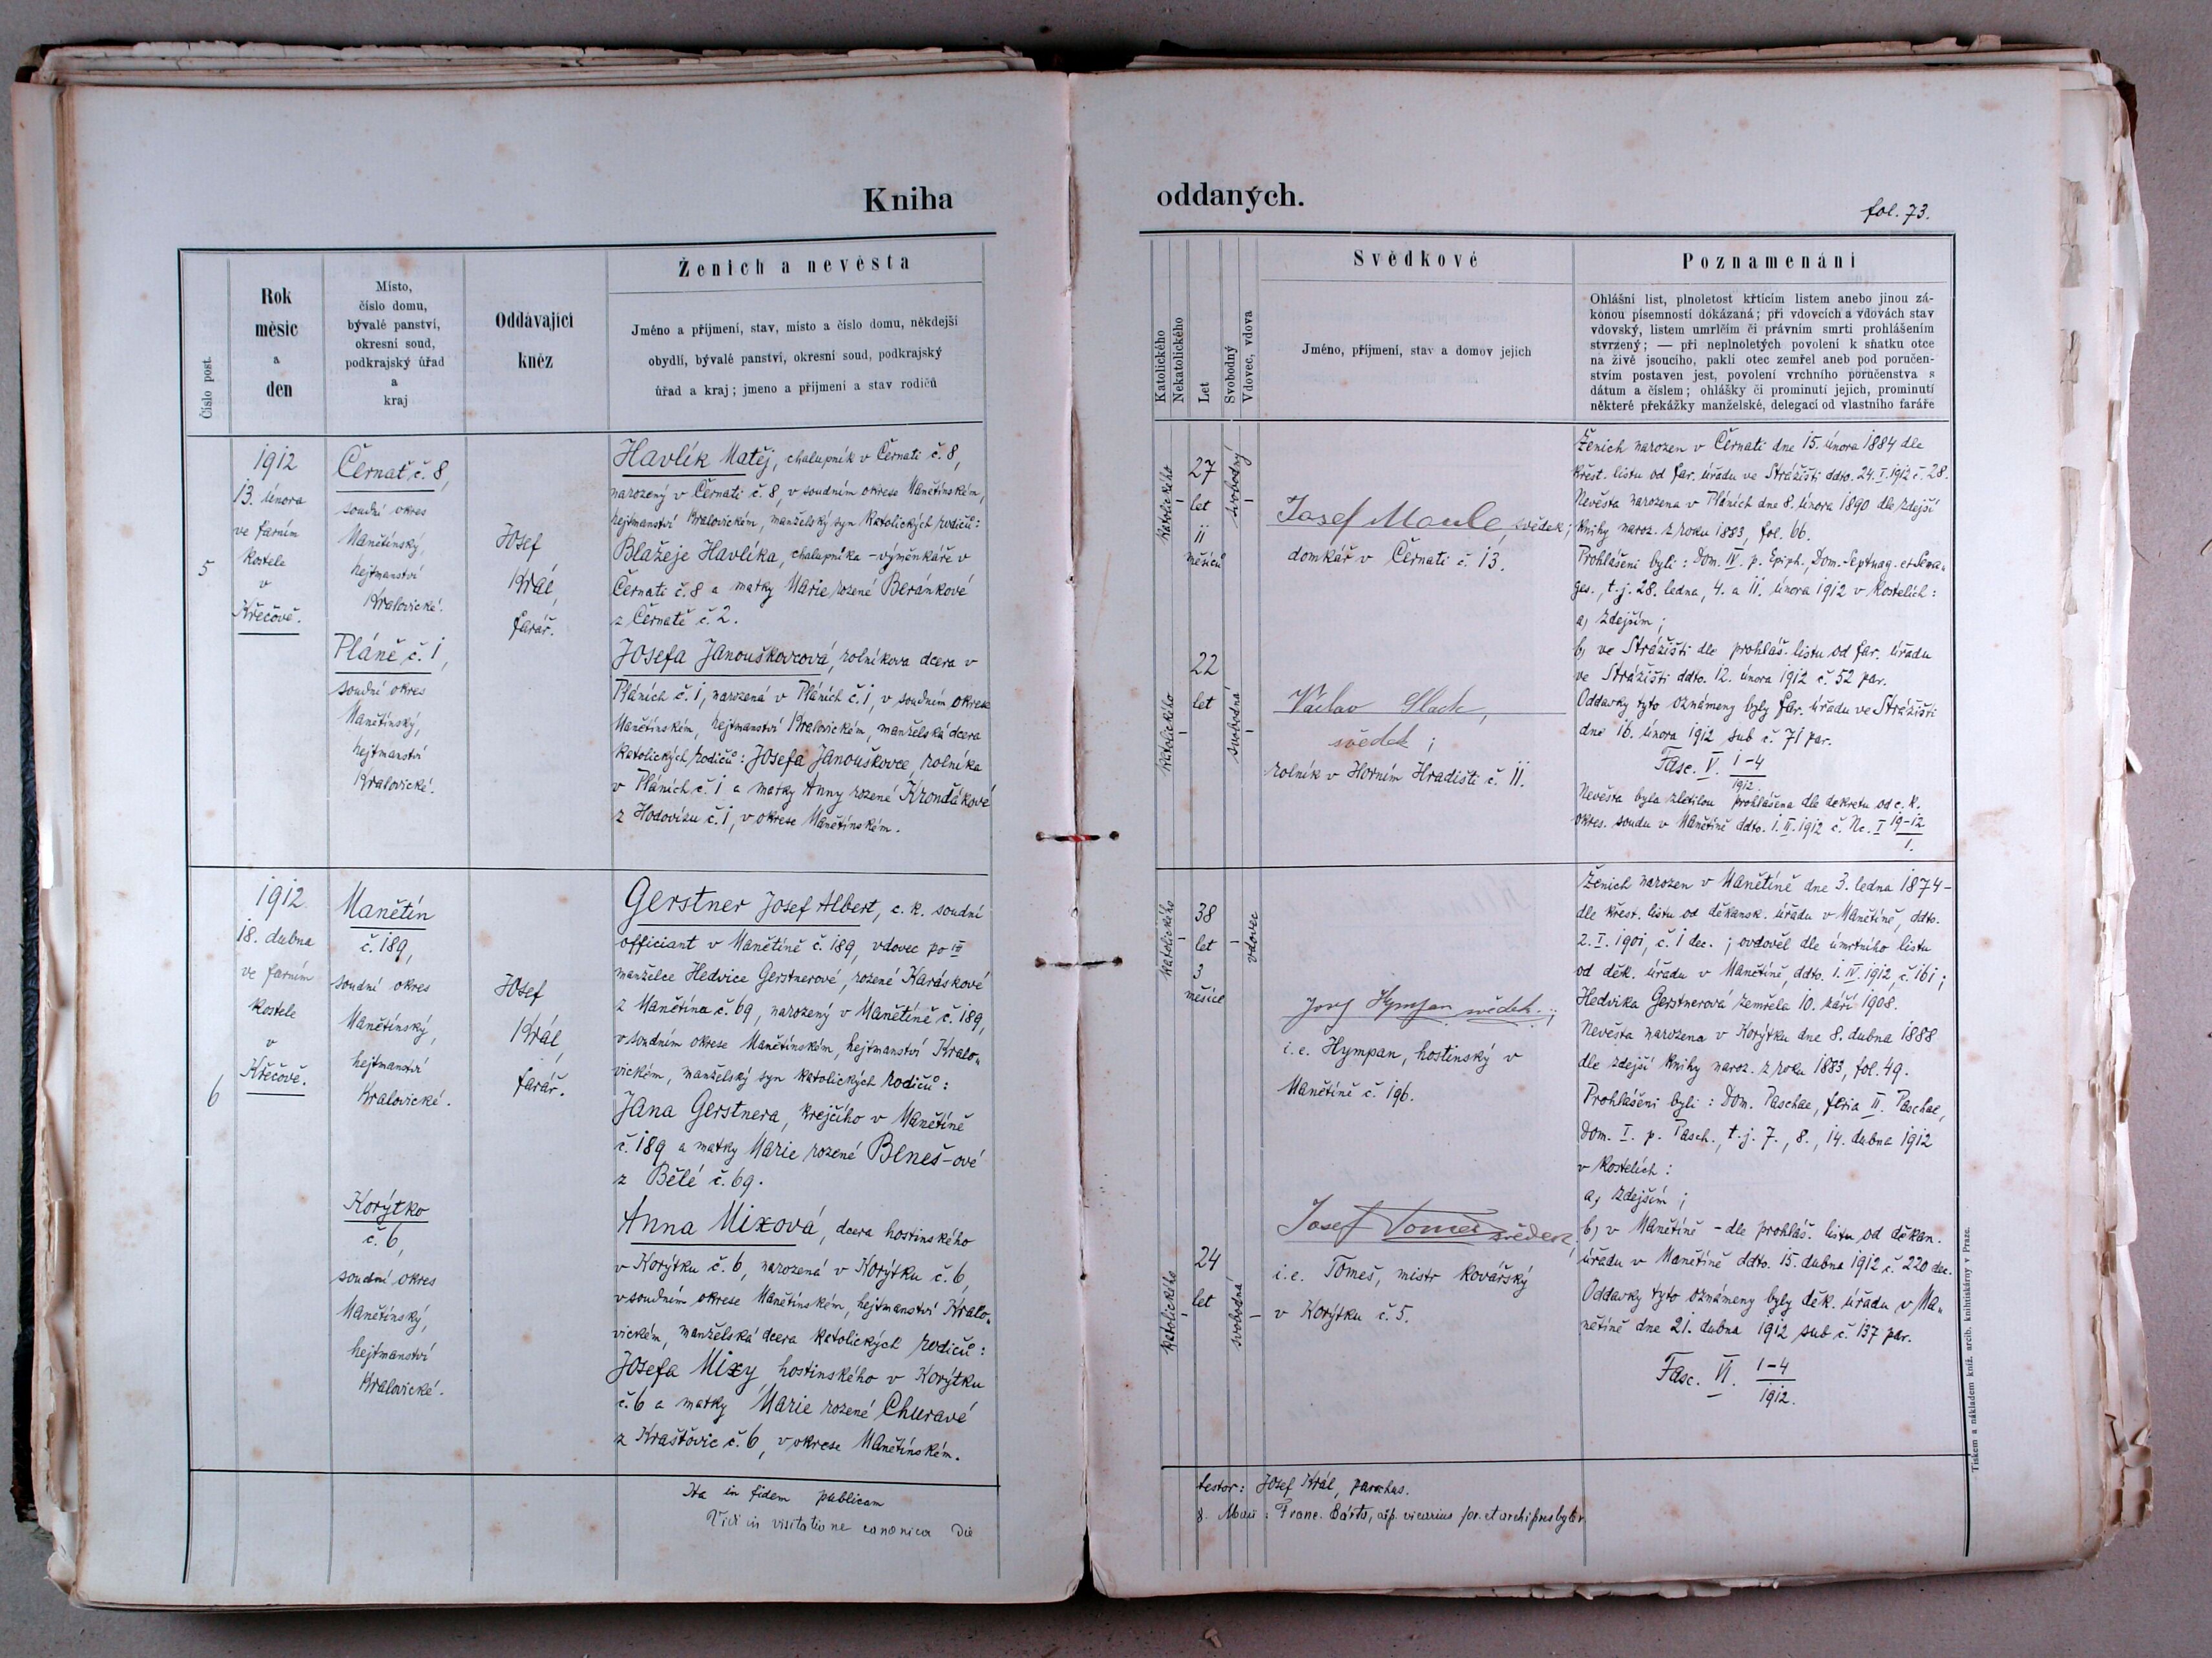 Kniha
oddaných.
fol. 73.
Číslo post.
Rok
měsíc
a
den
Místo,
číslo domu,
bývalé panství,
okresní soud,
podkrajský úřad
a
kraj
Oddávající
kněz
Ženich a nevěsta
Jméno a příjmení, stav, místo a číslo domu, někdejší
obydlí, bývalé panství, okresní soud, podkrajský
úřad a kraj; jmeno a příjmení a stav rodičů
Katolického
Nekatolického
Let
Svobodný
Vdovec, vdova
Svědkové
Jméno, příjmení, stav a domov jejich
Poznamenání
Ohlášní list, plnoletost křticím listem anebo jinou zá-
konou písemností dokázaná; při vdovcích a vdovách stav
vdovský, listem umrlčím či právním smrti prohlášením
stvrzený; — při neplnoletých povolení k sňatku otce
na živě jsoucího, pakli otec zemřel aneb pod poručen-
stvím postaven jest, povolení vrchního poručenstva s
dátum a číslem; ohlášky či prominutí jejich, prominutí
některé překážky manželské, delegací od vlastního faráře
5
1912
13. února
ve farním
kostele
v
Křečově.
Černať č. 8,
soudní okres
Manětínský,
hejtmanství
Kralovické.
Pláně č. 1,
soudní okres
Manětínský,
hejtmanství
Kralovické.
Josef
Král,
farář.
Havlík Matěj, chalupník v Černati č. 8,
narozený v Černati č. 8, v soudním okrese Manětínském,
hejtmanství Kralovickém, manželský syn katolických rodičů:
Blažeje Havlíka, chalupníka - výměnkáře v
Černati č. 8 a matky Marie rozené Beránkové
z Černatě č. 2.
Josefa Janouškovcová, rolníkova dcera v
Pláních č. 1, narozená v Pláních č. 1, v soudním okrese
Manětínském, hejtmanství Kralovickém, manželská dcera
katolických rodičů: Josefa Janouškovce, rolníka
v Pláních č. 1 a matky Anny rozené Krondákové
z Hodovízu č. 1, v okrese Manětínském.
katolického
27
let
11
měsíců
svobodný
katolického
22
let
svobodná
Josef Maule, svědek;
domkář v Černati č. 13.
Václav Slach,
svědek;
rolník v Horním Hradišti č. 11.
Ženich narozen v Černati dne 15. února 1884 dle
křest. listu od far. úřadu ve Strážišti ddto. 24. I. 1912 č. 28.
Nevěsta narozena v Pláních dne 8. února 1890 dle zdejší
knihy naroz. z roku 1883, fol. 66.
Prohlášeni byli: Dom. IV. p. Epiph., Dom. Septuag. et Sexa-
ges., t. j. 28. ledna, 4. a 11. února 1912 v kostelích:
a) zdejším;
b) ve Strážišti dle prohláš. listu od far. úřadu
ve Strážišti ddto. 12. února 1912 č. 52 par.
Oddavky tyto oznámeny byly far. úřadu ve Strážišti
dne 16. února 1912 sub č. 71 par.
Fasc. V. 1-4
1912.
Nevěsta byla zletilou prohlášena dle dekretu od c. k.
okres. soudu v Manětíně ddto. 1. II. 1912 č. Nc. I 19-12
1.
6
1912
18. dubna
ve farním
kostele
v
Křečově.
Manětín
č. 189,
soudní okres
Manětínský,
hejtmanství
Kralovické.
Korýtko
č. 6,
soudní okres
Manětínský,
hejtmanství
Kralovické.
Josef
Král,
farář.
Gerstner Josef Albert, c. k. soudní
officiant v Manětíně č. 189, vdovec po
manželce Hedvice Gerstnerové, rozené Karáskové
z Manětína č. 69, narozený v Manětíně č. 189,
v soudním okrese Manětínském, hejtmanství Kralo-
vickém, manželský syn katolických rodičů:
Jana Gerstnera, krejčího v Manětíně
č. 189 a matky Marie rozené Beneš-ové
z Bělé č. 69.
Anna Mixová, dcera hostinského
v Korýtku č. 6, narozená v Korýtku č. 6,
v soudním okrese Manětínském, hejtmanství Kralo-
vickém, manželská dcera katolických rodičů:
Josefa Mixy, hostinského v Korýtku
č. 6 a matky Marie rozené Churavé
z Kraštovic č. 6, v okrese Manětínském.
katolického
38
let
3
měsíce
vdovec
katolického
24
let
svobodná
Josef Hympan svědek.;
i. e. Hympan, hostinský v
Manětíně č. 196.
Josef Tomeš svědek,
i. e. Tomeš, mistr kovářský
v Korýtku č. 5.
Ženich narozen v Manětíně dne 3. ledna 1874 -
dle křest. listu od děkansk. úřadu v Manětíně, ddto.
2. I. 1901, č. 1 dec.; ovdověl dle úmrtního listu
od děk. úřadu v Manětíně, ddto. 1. IV. 1912, č. 161;
Hedvika Gerstnerová zemřela 10. září 1908.
Nevěsta narozena v Korýtku dne 8. dubna 1888
dle zdejší knihy naroz. z roku 1883, fol. 49.
Prohlášeni byli: Dom. Paschae, feria II. Paschae,
Dom. I. p. Pasch., t. j. 7., 8., 14. dubna 1912
v kostelích:
a) zdejším;
b) v Manětíně - dle prohláš. listu od děkan.
úřadu v Manětíně ddto. 15. dubna 1912 č. 220 dec.
Oddavky tyto oznámeny byly děk. úřadu v Ma-
nětíně dne 21. dubna 1912 sub č. 137 par.
Fasc. VI. 1-4
1912.
Ita in fidem publicam
testor: Josef Král, parochus.
Vidi in visitatione canonica die
8. Maii: Franc. Bárta, vicarius for. et archipresbyter
Tiskem a nákladem kníž. arcib. knihtiskárny v Praze.